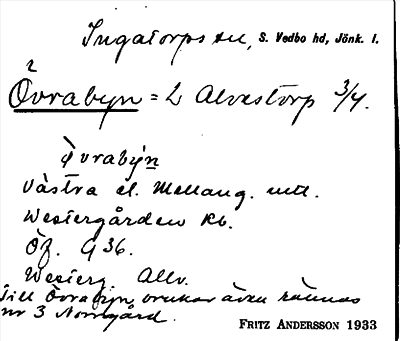 Ingatorps sn, S. Vedbo hd, Jönk. l.
Övrabyn = L Alvestorp 3/4.
Övrabyn
Västra el. Mellang.
Westergården Kb.
Öf. G 36.
Westerg. Allv.
Till Övrabyn brukar även räknas
nr 3 Norrgård.
FRITZ ANDERSSON 1933